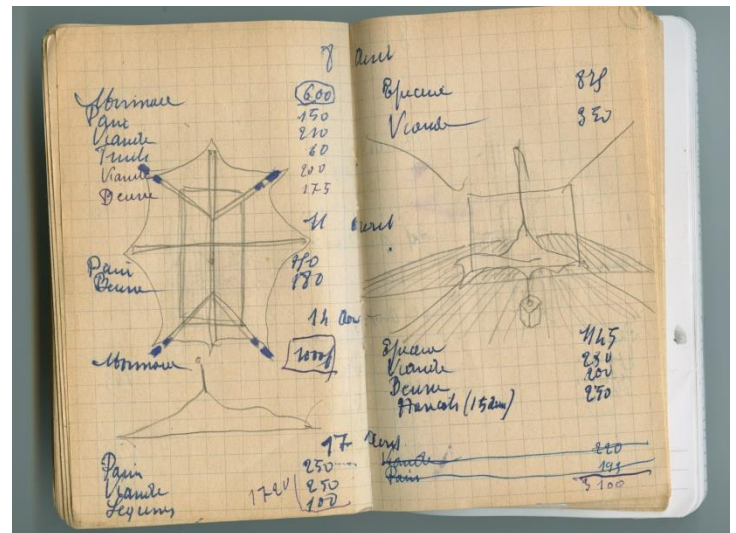 8 Avril
Monnaie 600
Pain 150
Viande 210
Fruits 60
Viande 200
Beurre 175
11 Avril
Pain
Beurre 180
14 Avr
Monnaie 1000
17 Avril
Pain 250
Viande 250
Légumes 100
1720
Epicerie
Viande 350
Epicerie 1145
Viande 250
Beurre 200
Haricots (15 200
Viande 220
Pain 195